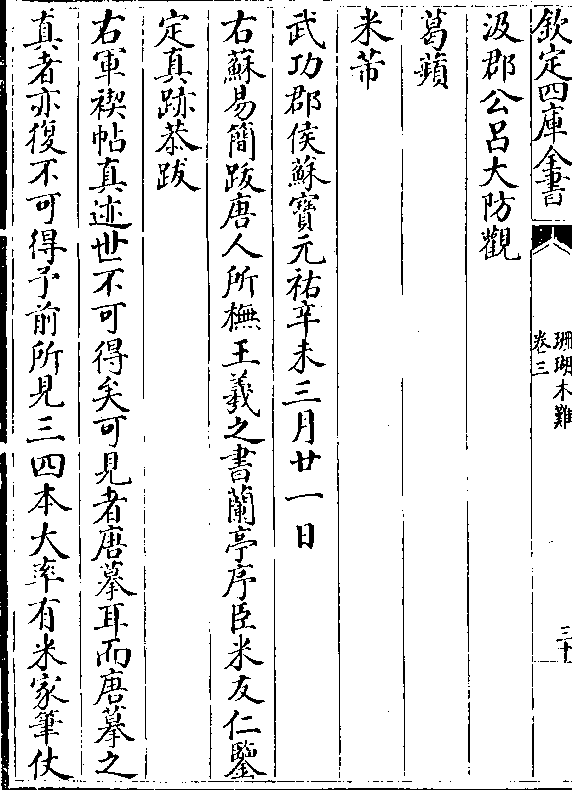 欽定四庫全書
珊瑚木難
卷三
三十
汲郡公呂大防觀
葛蘋
米芾
武功郡侯蘇寶元祐辛未三月廿一日
右蘇易簡跋唐人所橅王羲之書蘭亭序臣米友仁鑒
定真跡恭跋
右軍禊帖真迹世不可得矣可見者唐摹耳而唐摹之
真者亦復不可得予前所見三四本大率有米家筆仗